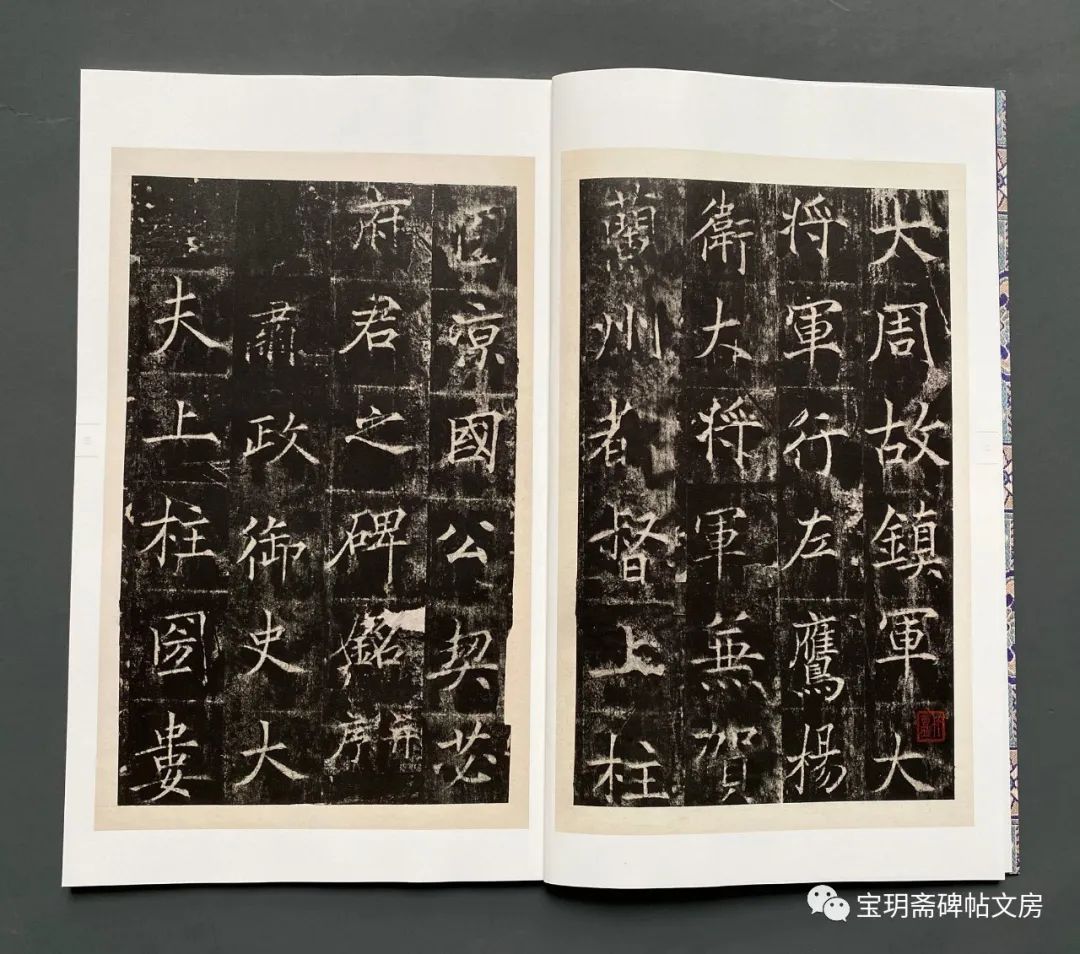 大周故鎮軍大
将軍行左鷹楊
衛大将軍兼賀
蘭州都督上柱
圀凉國公契苾
府君之碑銘并序
肅政御史大
夫上柱圀婁
宝玥斋碑帖文房